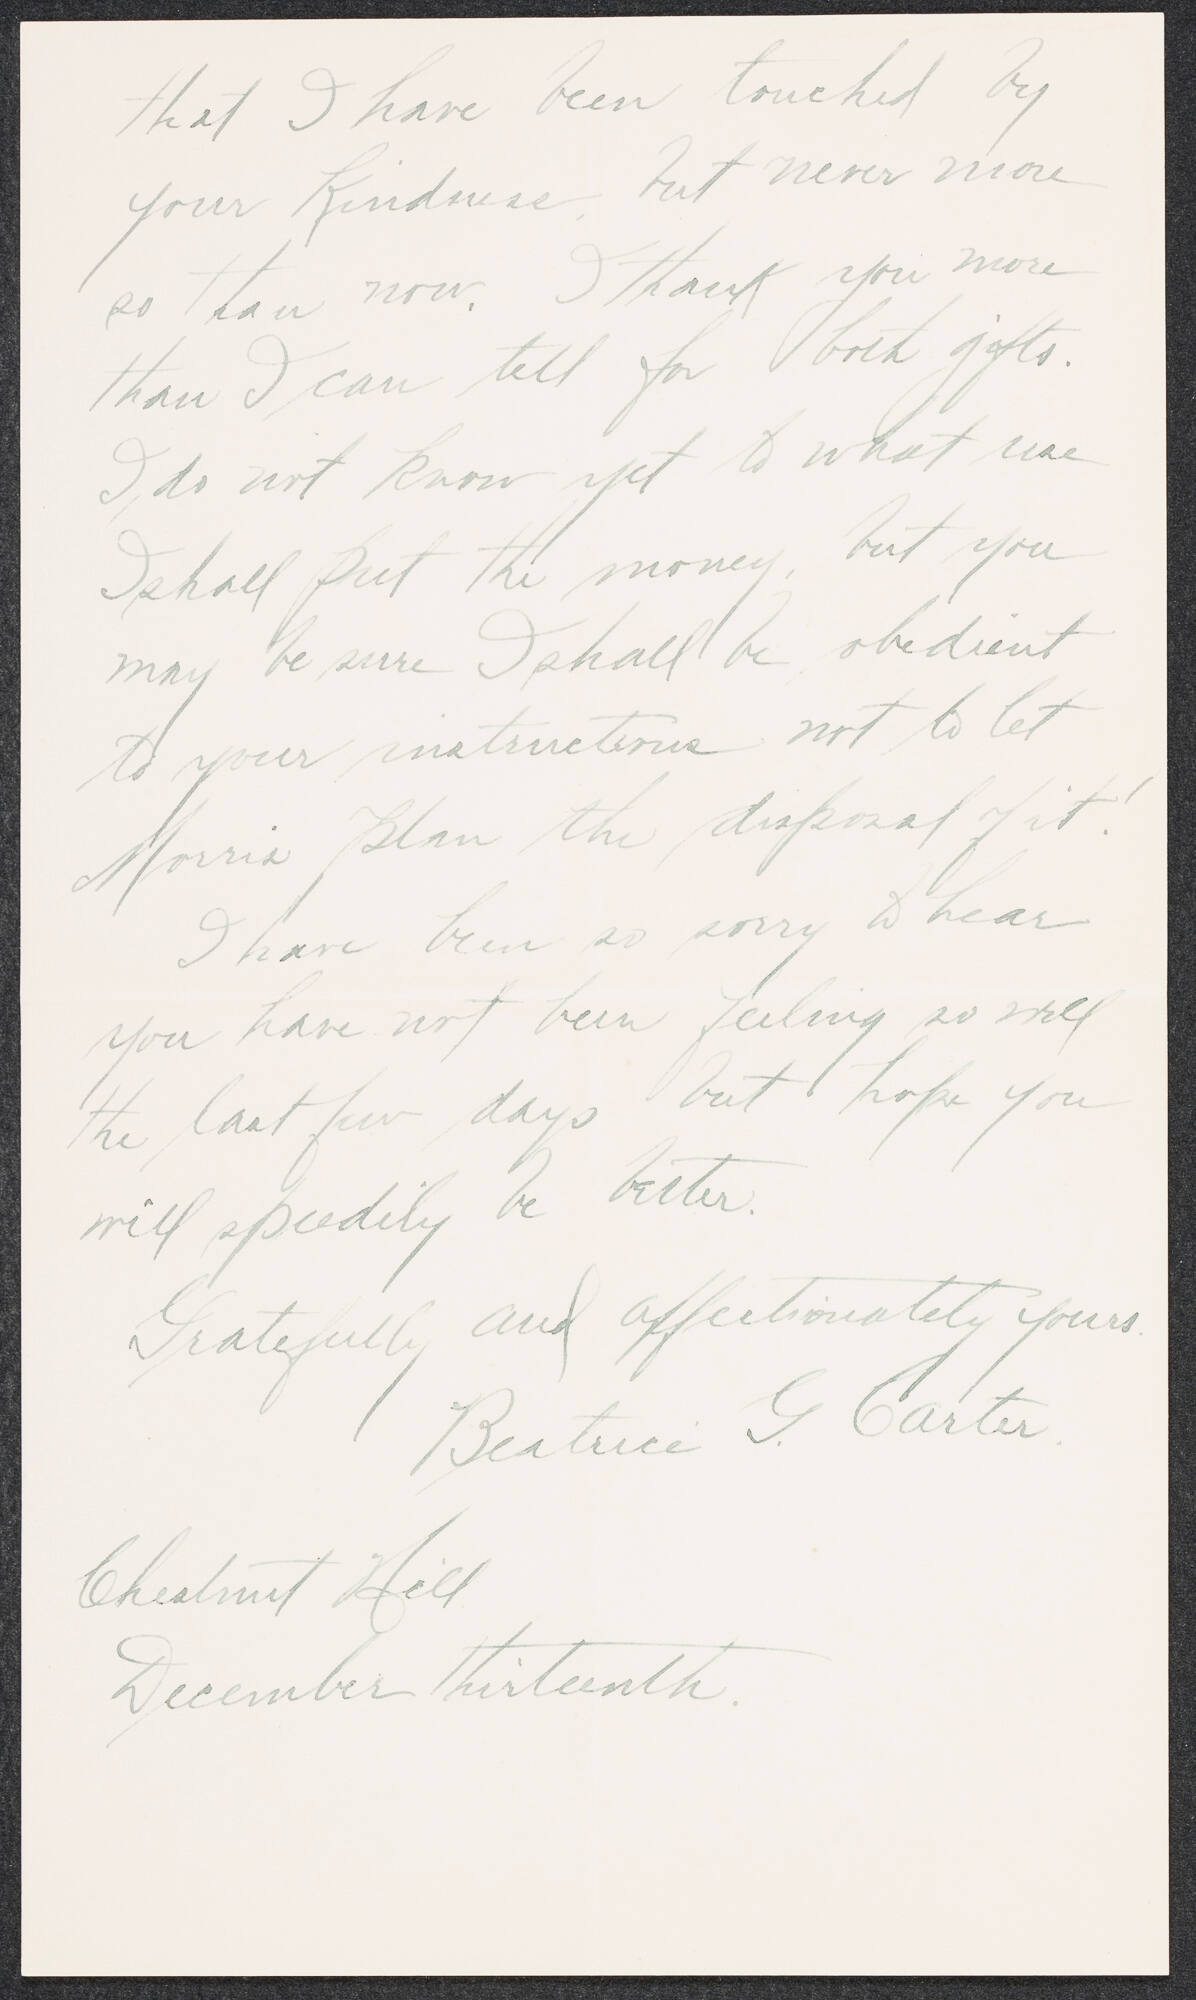 that I have been touched by
your kindness, but never more
so than now. I thank you more
than I can tell for both gifts.
I do not know yet to what use
I shall put the money, but you
may be sure I shall be obedient
to your instructions not to let
Morris plan the disposal of it!
I have been so sorry to hear
you have not been feeling so well
the last few days but hope you
will speedily be better.
Gratefully and affectionately yours.
Beatrice G. Carter.
Chestnut Hill
December thirteenth.